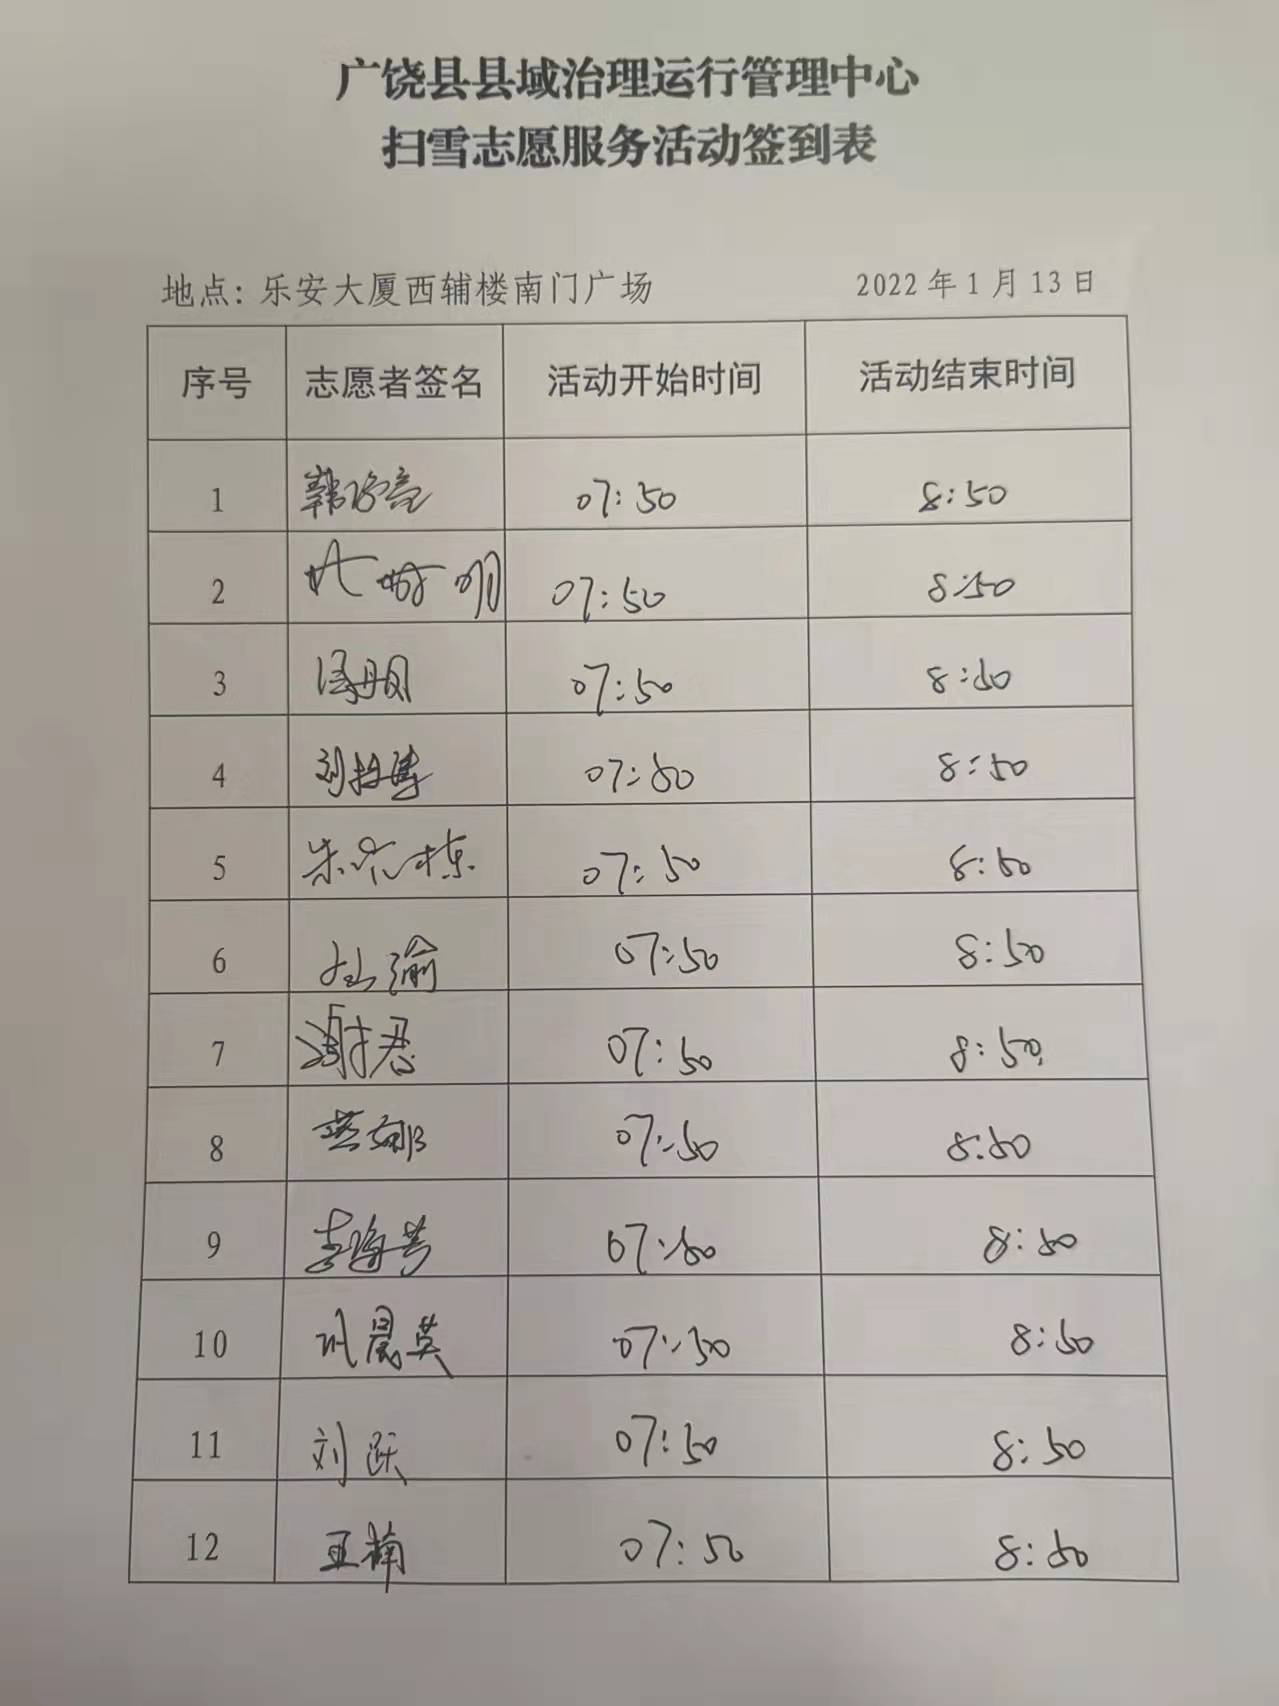 广饶县县域治理运行管理中心
扫雪志愿服务活动签到表
地点：乐安大厦西辅楼南门广场 2022年1月13日
序号 志愿者签名 活动开始时间 活动结束时间
1 07:50 8:50
2 07:50 8:50
3 冯丹凤 07:50 8:50
4 07:50 8:50
5 07:50 8:50
6 07:50 8:50
7 07:50 8:50
8 07:50 8:50
9 07:50 8:50
10 晨英 07:50 8:50
11 刘跃 07:50 8:50
12 王楠 07:50 8:50